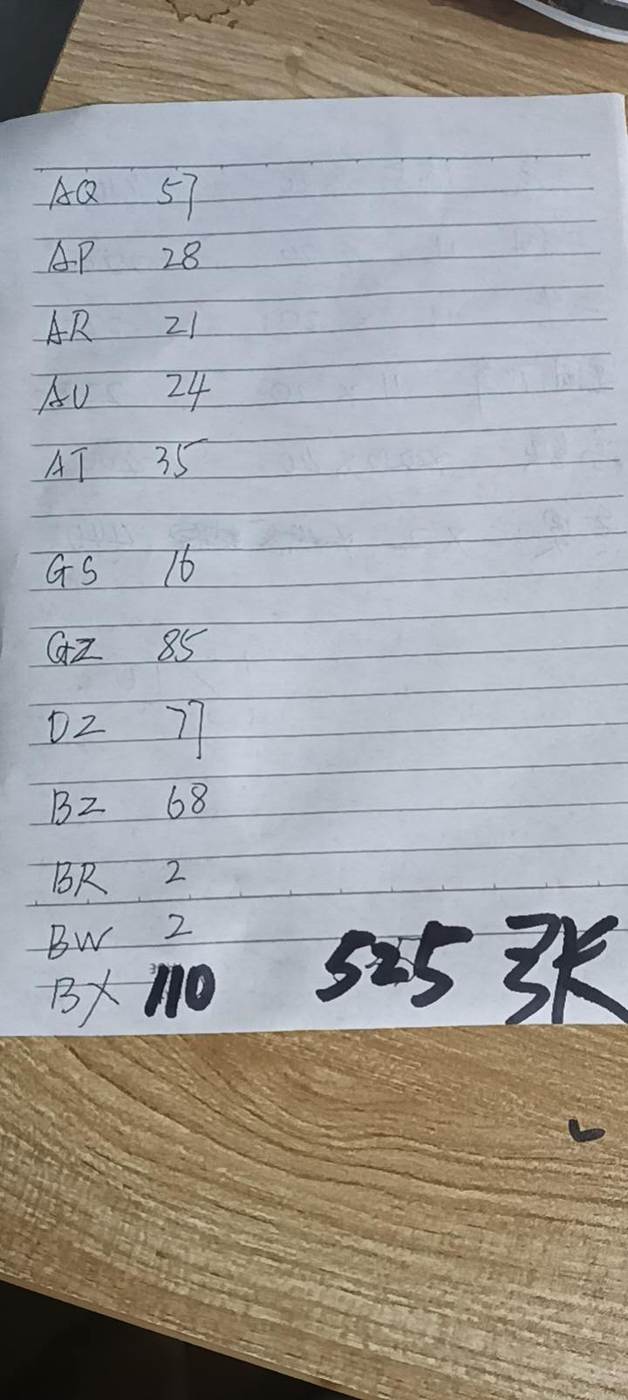 AQ 57
AP 28
AR 21
AU 24
AT 35
GS 16
GZ 85
DZ 77
BZ 68
BR 2
BW 2
BX 110 525张